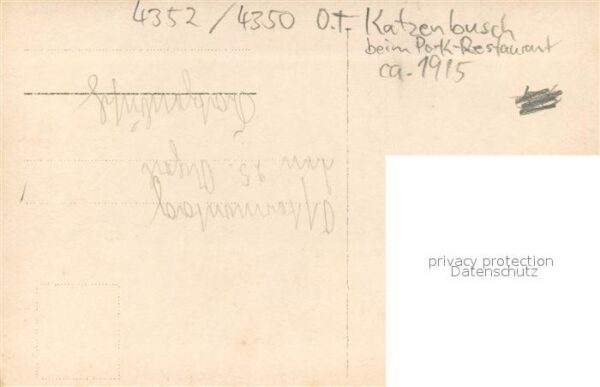 4352/4350 O.T. Katzenbusch
beim Park-Restaurant
ca. 1915
privacy protection
Datenschutz